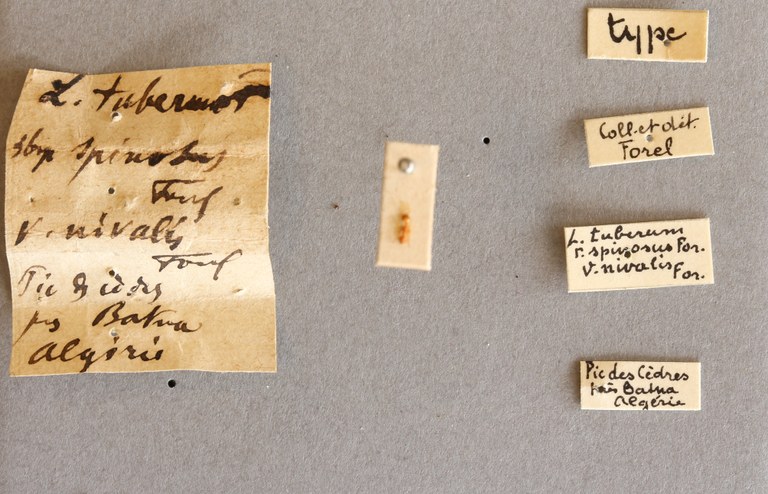 L. tuberum
sbsp spinosus
Forel
v. nivalis
Forel
Pic des cèdres
près Batna
Algérie
type
Coll. et dét.
Forel
L. tuberum
r. spinosus For.
v. nivalis For.
Pic des Cèdres
près Batna
Algérie